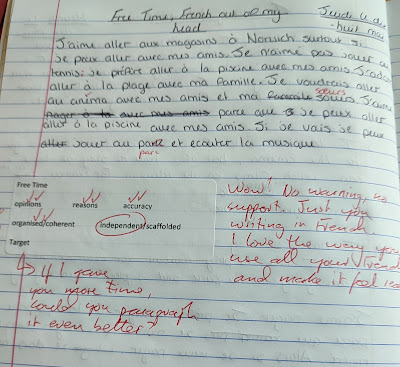 Free Time, French out of my
head
Jeudi le dix-
huit mai
J'aime aller aux magasins à Norwich surtout si
Je peux aller avec mes amis. Je n'aime pas jouer au
tennis. Je préfère aller à la piscine avec mes amis. J'adore
aller à la plage avec ma famille. Je voudrais aller
au cinéma avec mes amis et ma sœurs J'aime
nager à la avec mes amis parce que si je peux aller
aller à la piscine avec mes amis. Si je vais je peux
aller jouer au parc et ecouter la musique
sœurs
parc
Free Time
opinions reasons accuracy
organised/coherent independent/scaffolded
Target
Wow! No warning, no
support. Just you
writing in French
I love the way you
use all your French
and make it feel
If I gave
you more time,
could you paragraph
it even better?